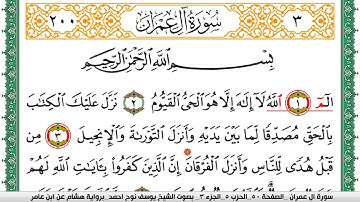 ٣ سُورَةُ آلِ عِمْرَانَ ٢٠٠
بِسْمِ اللَّهِ الرَّحْمَٰنِ الرَّحِيمِ
الٓمٓ ١ اللَّهُ لَا إِلَٰهَ إِلَّا هُوَ الْحَيُّ الْقَيُّومُ ٢ نَزَّلَ عَلَيْكَ الْكِتَابَ
بِالْحَقِّ مُصَدِّقًا لِّمَا بَيْنَ يَدَيْهِ وَأَنزَلَ التَّوْرَاةَ وَالْإِنجِيلَ ٣ مِن
قَبْلُ هُدًى لِّلنَّاسِ وَأَنزَلَ الْفُرْقَانَ إِنَّ الَّذِينَ كَفَرُوا بِـَٔايَاتِ اللَّهِ لَهُمْ
سورة آل عمران . الصفحة ٥٠ . الحزب ٥ . الجزء ٣ . بصوت الشيخ يوسف نوح احمد . برواية هشام عن ابن عامر